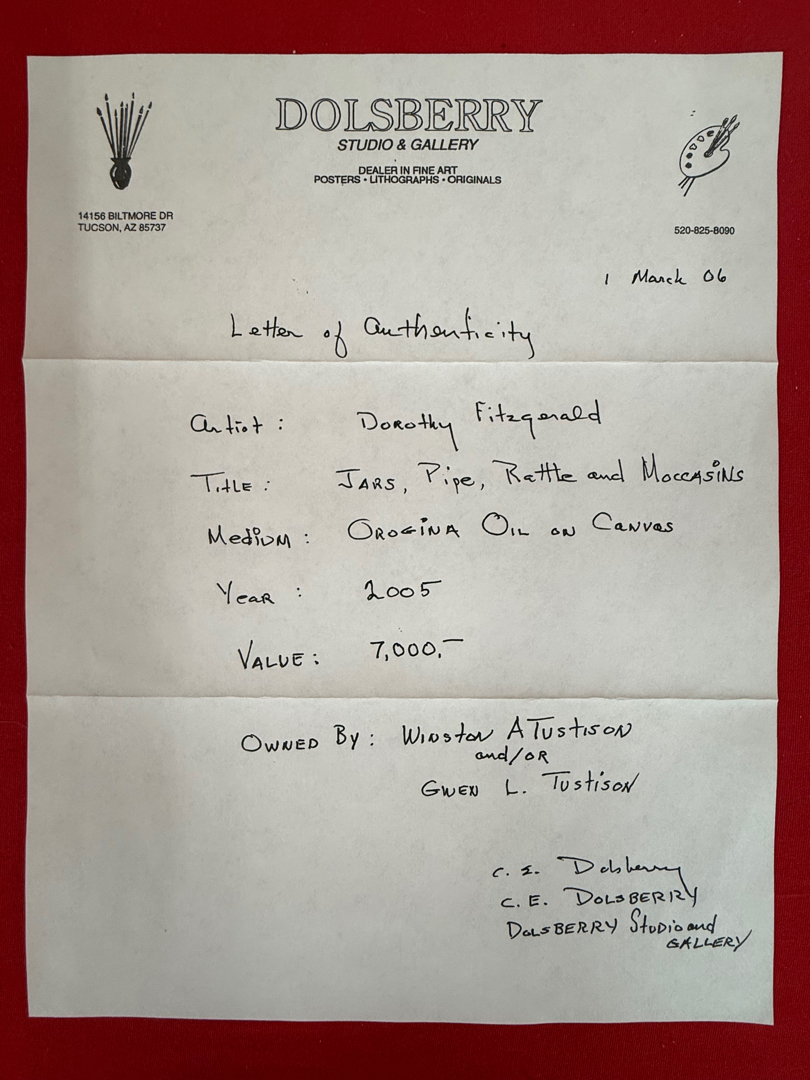 DOLSBERRY
STUDIO & GALLERY
DEALER IN FINE ART
POSTERS • LITHOGRAPHS • ORIGINALS
14156 BILTMORE DR
TUCSON, AZ 85737
520-825-8090
1 March 06
Letter of Authenticity
Artist : Dorothy Fitzgerald
Title : Jars, Pipe, Rattle and Moccasins
Medium : Orogina Oil on Canvas
Year : 2005
Value : 7,000.—
Owned By : Winston A Tustison
and/or
Gwen L. Tustison
C. E. Dolsberry
C. E. DOLSBERRY
DOLSBERRY Studio and
GALLERY